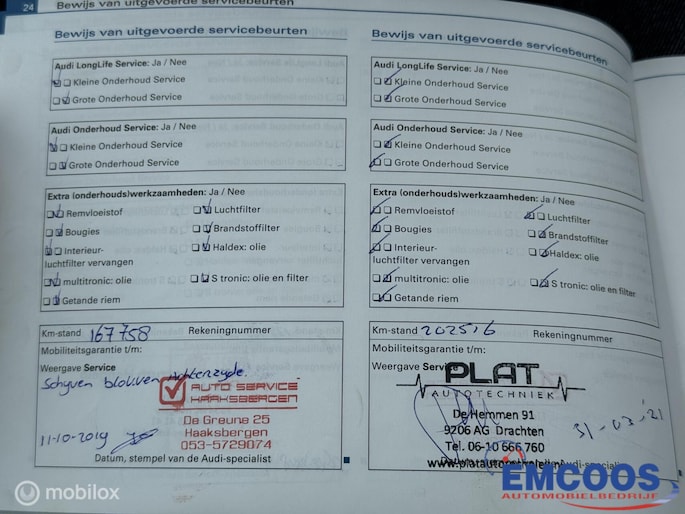 24
Bewijs van uitgevoerde servicebeurten
Bewijs van uitgevoerde servicebeurten
Audi LongLife Service: Ja / Nee
Kleine Onderhoud Service
Grote Onderhoud Service
Audi Onderhoud Service: Ja / Nee
Kleine Onderhoud Service
Grote Onderhoud Service
Extra (onderhouds)werkzaamheden: Ja / Nee
Remvloeistof Luchtfilter
Bougies Brandstoffilter
Interieur- Haldex: olie
luchtfilter vervangen
multitronic: olie S tronic: olie en filter
Getande riem
Km-stand 167758 Rekeningnummer
Mobiliteitsgarantie t/m:
Weergave Service
Schyven blokken Achterzyde.
AUTO SERVICE
HAAKSBERGEN
De Greune 25
Haaksbergen
11-10-2019 053-5729074
Datum, stempel van de Audi-specialist
Bewijs van uitgevoerde servicebeurten
Audi LongLife Service: Ja / Nee
Kleine Onderhoud Service
Grote Onderhoud Service
Audi Onderhoud Service: Ja / Nee
Kleine Onderhoud Service
Grote Onderhoud Service
Extra (onderhouds)werkzaamheden: Ja / Nee
Remvloeistof Luchtfilter
Bougies Brandstoffilter
Interieur- Haldex: olie
luchtfilter vervangen
multitronic: olie S tronic: olie en filter
Getande riem
Km-stand 202516 Rekeningnummer
Mobiliteitsgarantie t/m:
Weergave Service
PLAT
AUTOTECHNIEK
De Hemmen 91
9206 AG Drachten 31-03-'21
Tel. 06-10 666 760
Audi-specialist
mobilox
EMCOOS
AUTOMOBIELBEDRIJF